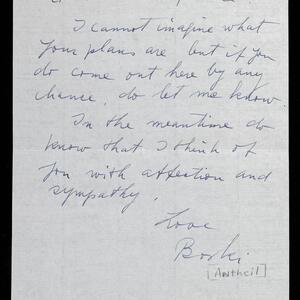 I cannot imagine what
your plans are but if you
do come out here by any
chance, do let me know.
In the meantime do
know that I think of
you with affection and
sympathy.
Love
Boski
[Antheil]